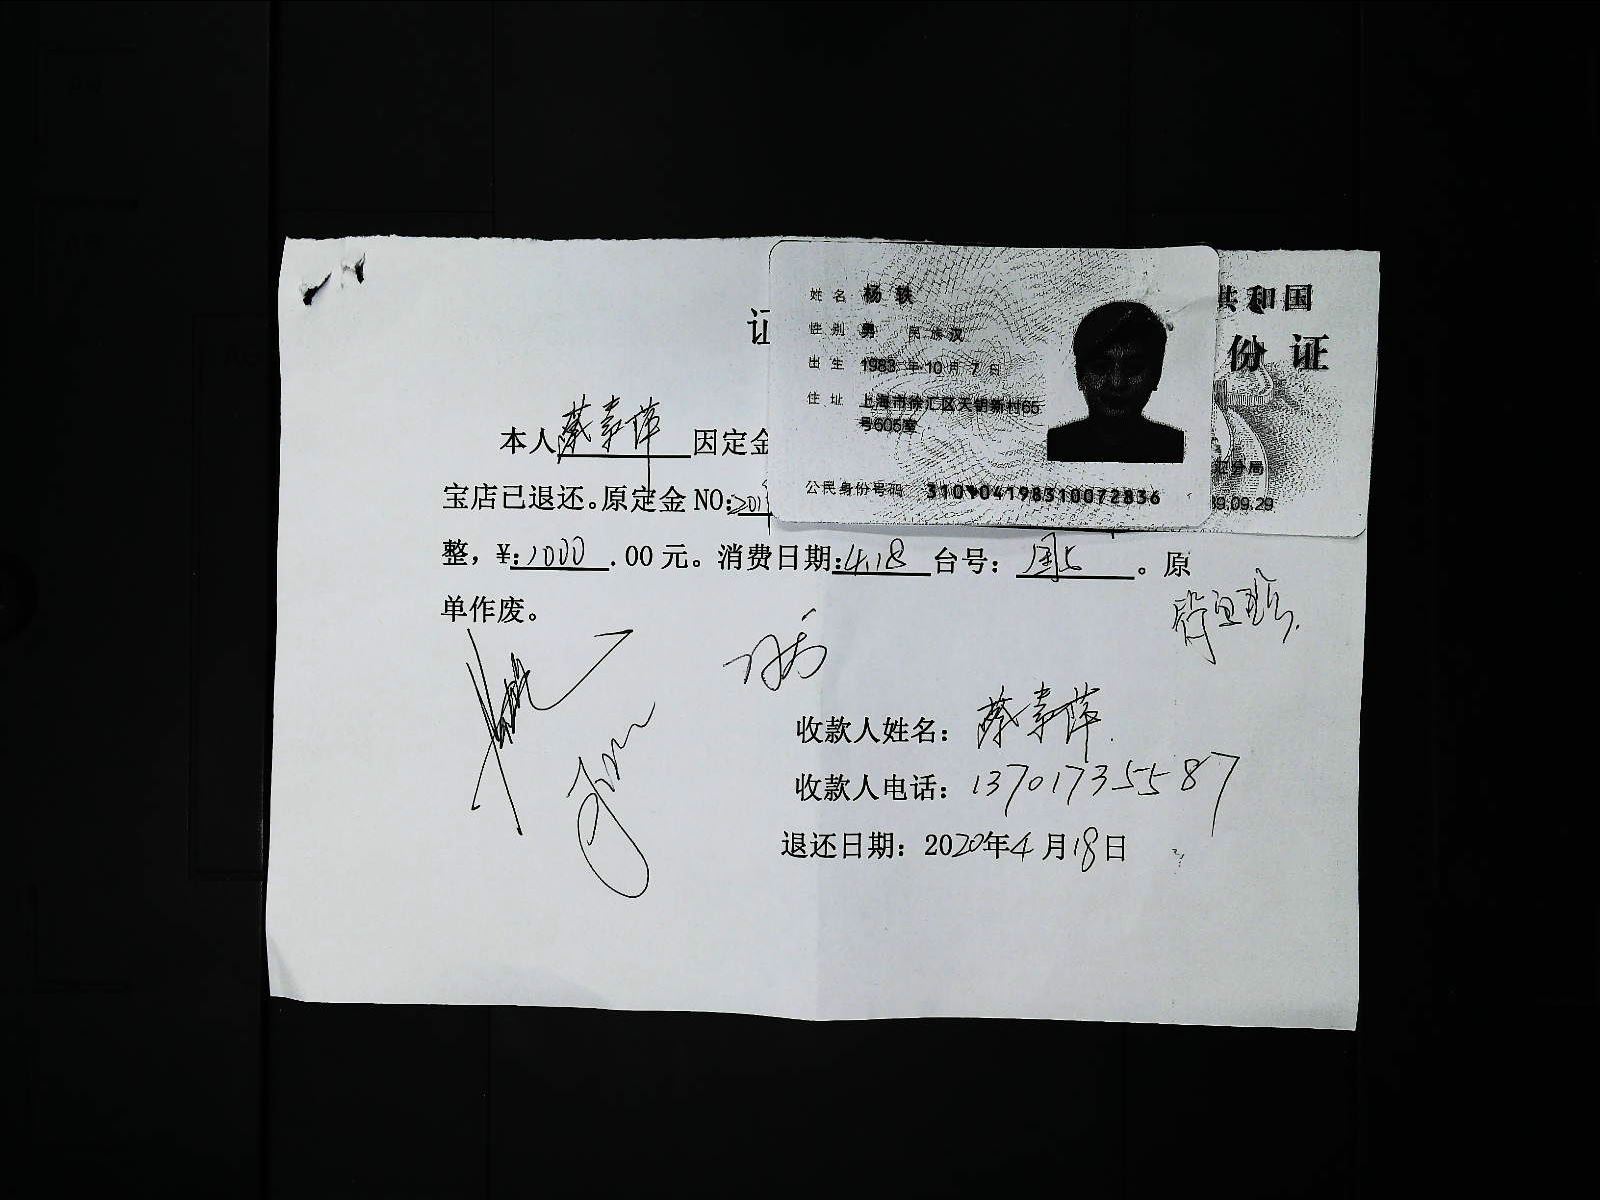 姓名 杨轶
性别 男 民族汉
出生 1983年10月7日
住址 上海市徐汇区天钥新村65
号605室
公民身份号码 310104198310072836
共和国
份证
分局
09.29
证
本人 因定金
宝店已退还。原定金NO:201
整，¥:1000.00元。消费日期:4.18 台号： 。原
单作废。
收款人姓名：
收款人电话：13701735587
退还日期：2020年4月18日